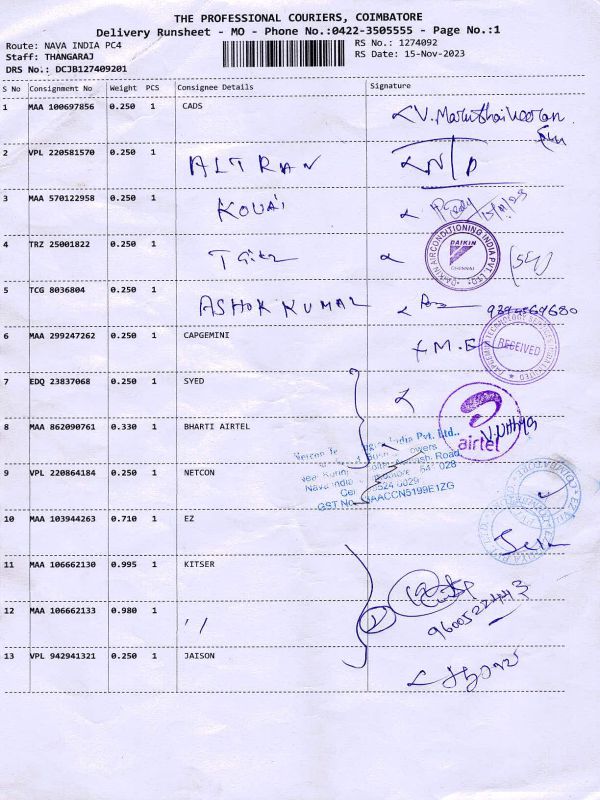 THE PROFESSIONAL COURIERS, COIMBATORE
Delivery Runsheet - MO - Phone No.:0422-3505555 - Page No.:1
Route: NAVA INDIA PC4
Staff: THANGARAJ
DRS No.: DCJB127409201
RS No.: 1274092
RS Date: 15-Nov-2023
S No Consignment No Weight PCS Consignee Details Signature
1 MAA 100697856 0.250 1 CADS
2 VPL 220581570 0.250 1 ALTRAN
3 MAA 570122958 0.250 1 KOVAI
4 TRZ 25001822 0.250 1
DAIKIN AIRCONDITIONING INDIA PVT. LTD.
DAIKIN
CHENNAI
5 TCG 8036804 0.250 1 ASHOK KUMAR
6 MAA 299247262 0.250 1 CAPGEMINI
RECEIVED
7 EDQ 23837068 0.250 1 SYED
8 MAA 862090761 0.330 1 BHARTI AIRTEL
airtel
India Pvt. Ltd.,
9 VPL 220864184 0.250 1 NETCON
10 MAA 103944263 0.710 1 EZ
11 MAA 106662130 0.995 1 KITSER
12 MAA 106662133 0.980 1 ''
9600522443
13 VPL 942941321 0.250 1 JAISON